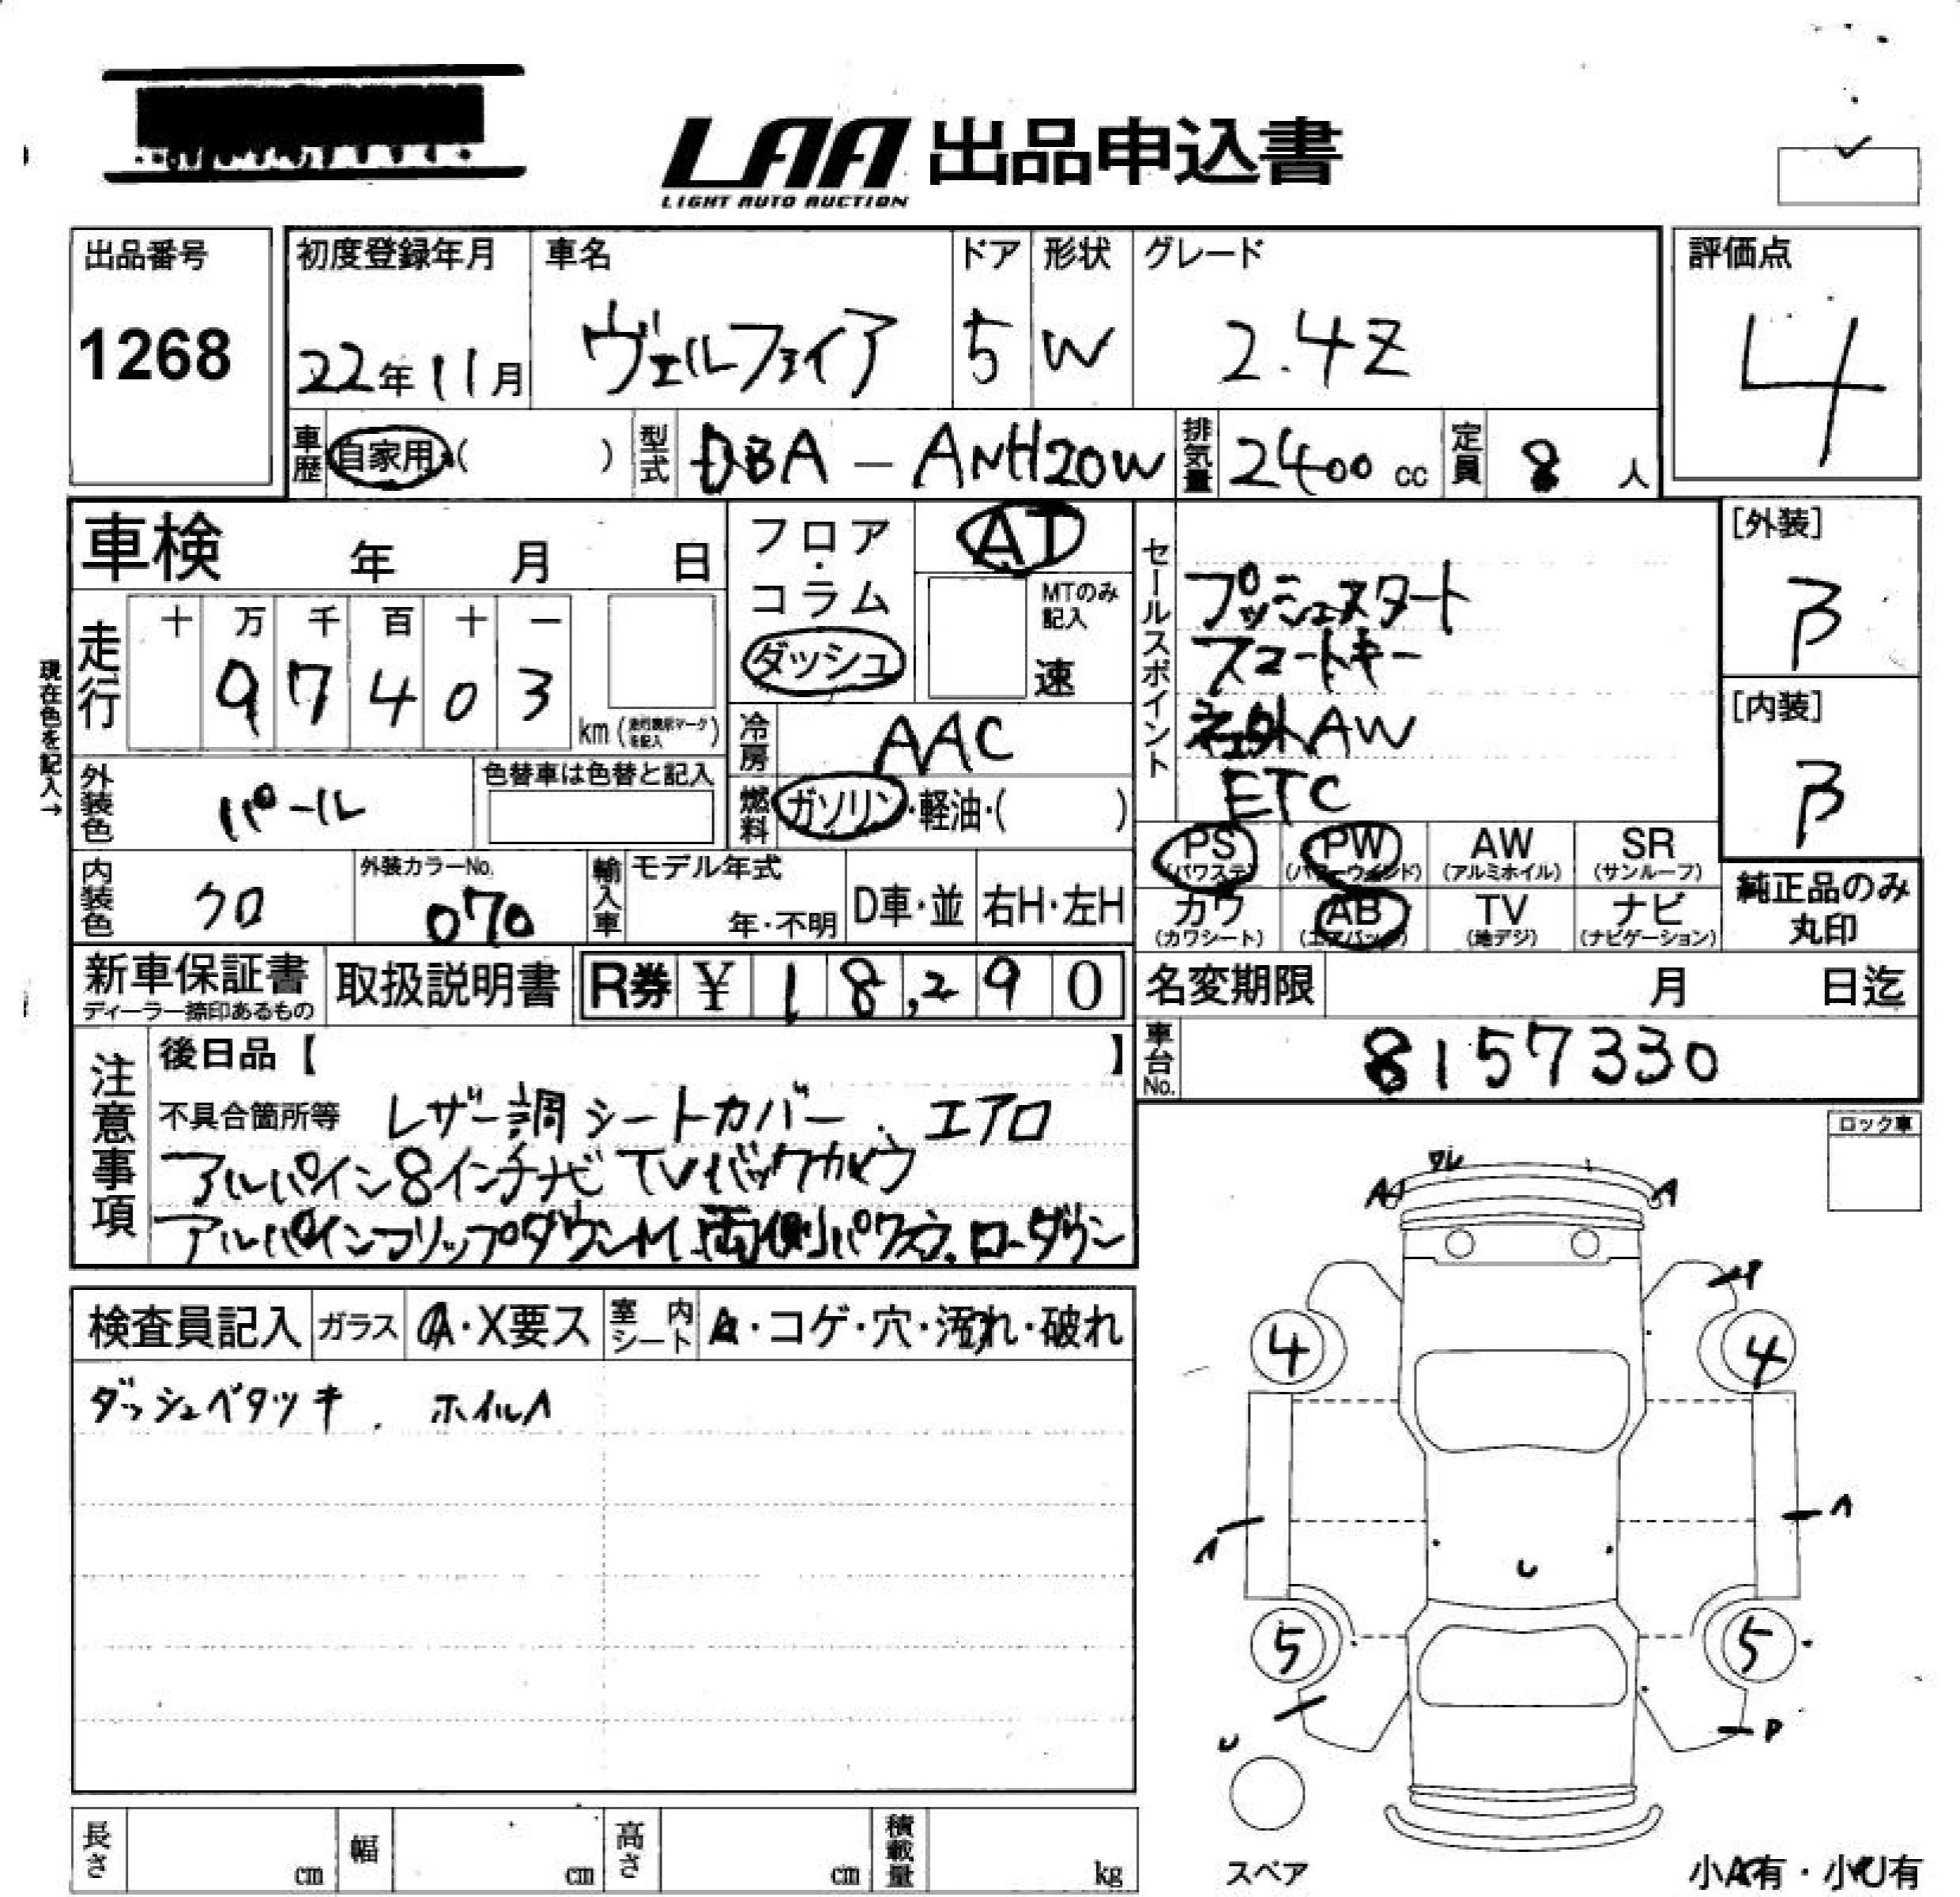 LAA 出品申込書
LIGHT AUTO AUCTION
出品番号
1268
初度登録年月
22年11月
車名
ヴェルファイア
ドア
5
形状
W
グレード
2.4Z
評価点
4
車歴
自家用・( )
型式
DBA - ANH20W
排気量
2400 cc
定員
8 人
車検 年 月 日
フロア・コラム
ダッシュ
AT
MTのみ記入
速
セールスポイント
プッシュスタート
スマートキー
社外AW
ETC
[外装]
B
[内装]
B
現在色を記入→
走行
十 万 千 百 十 一
9 7 4 0 3
km (走行表示マークを記入)
冷房
AAC
外装色
パール
色替車は色替と記入
燃料
ガソリン・軽油・( )
PS (パワステ)
PW (パワーウィンド)
AW (アルミホイル)
SR (サンルーフ)
カワ (カワシート)
AB (エアバック)
TV (地デジ)
ナビ (ナビゲーション)
純正品のみ丸印
内装色
クロ
外装カラーNo.
070
輸入車
モデル年式
年・不明
D車・並
右H・左H
新車保証書
ディーラー捺印あるもの
取扱説明書
R券 ¥ 18,290
名変期限 月 日迄
車台No.
8157330
注意事項
後日品【 】
不具合箇所等 レザー調シートカバー. エアロ
アルパイン8インチナビ TVバックカメラ
アルパインフリップダウンM. 両側パワスラ. ローダウン
ロック車
検査員記入
ガラス
A・X要ス
室内シート
・コゲ・穴・汚れ・破れ
ダッシュベタツキ. ホイルA
ワレ
A
A
P
4
4
A
A
U
5
5
U
P
スペア
小A有・小U有
長さ cm
幅 cm
高さ cm
積載量 kg